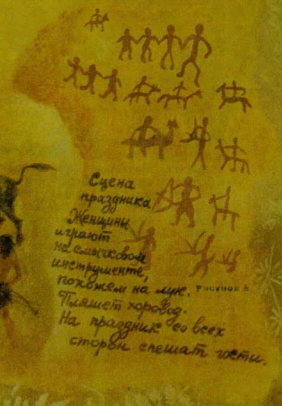 Сцена
праздника.
Женщины
играют
на смычковом
инструменте,
похожем на лук.
Пляшет хоровод.
На праздник со всех
сторон спешат гости.
Рисунок